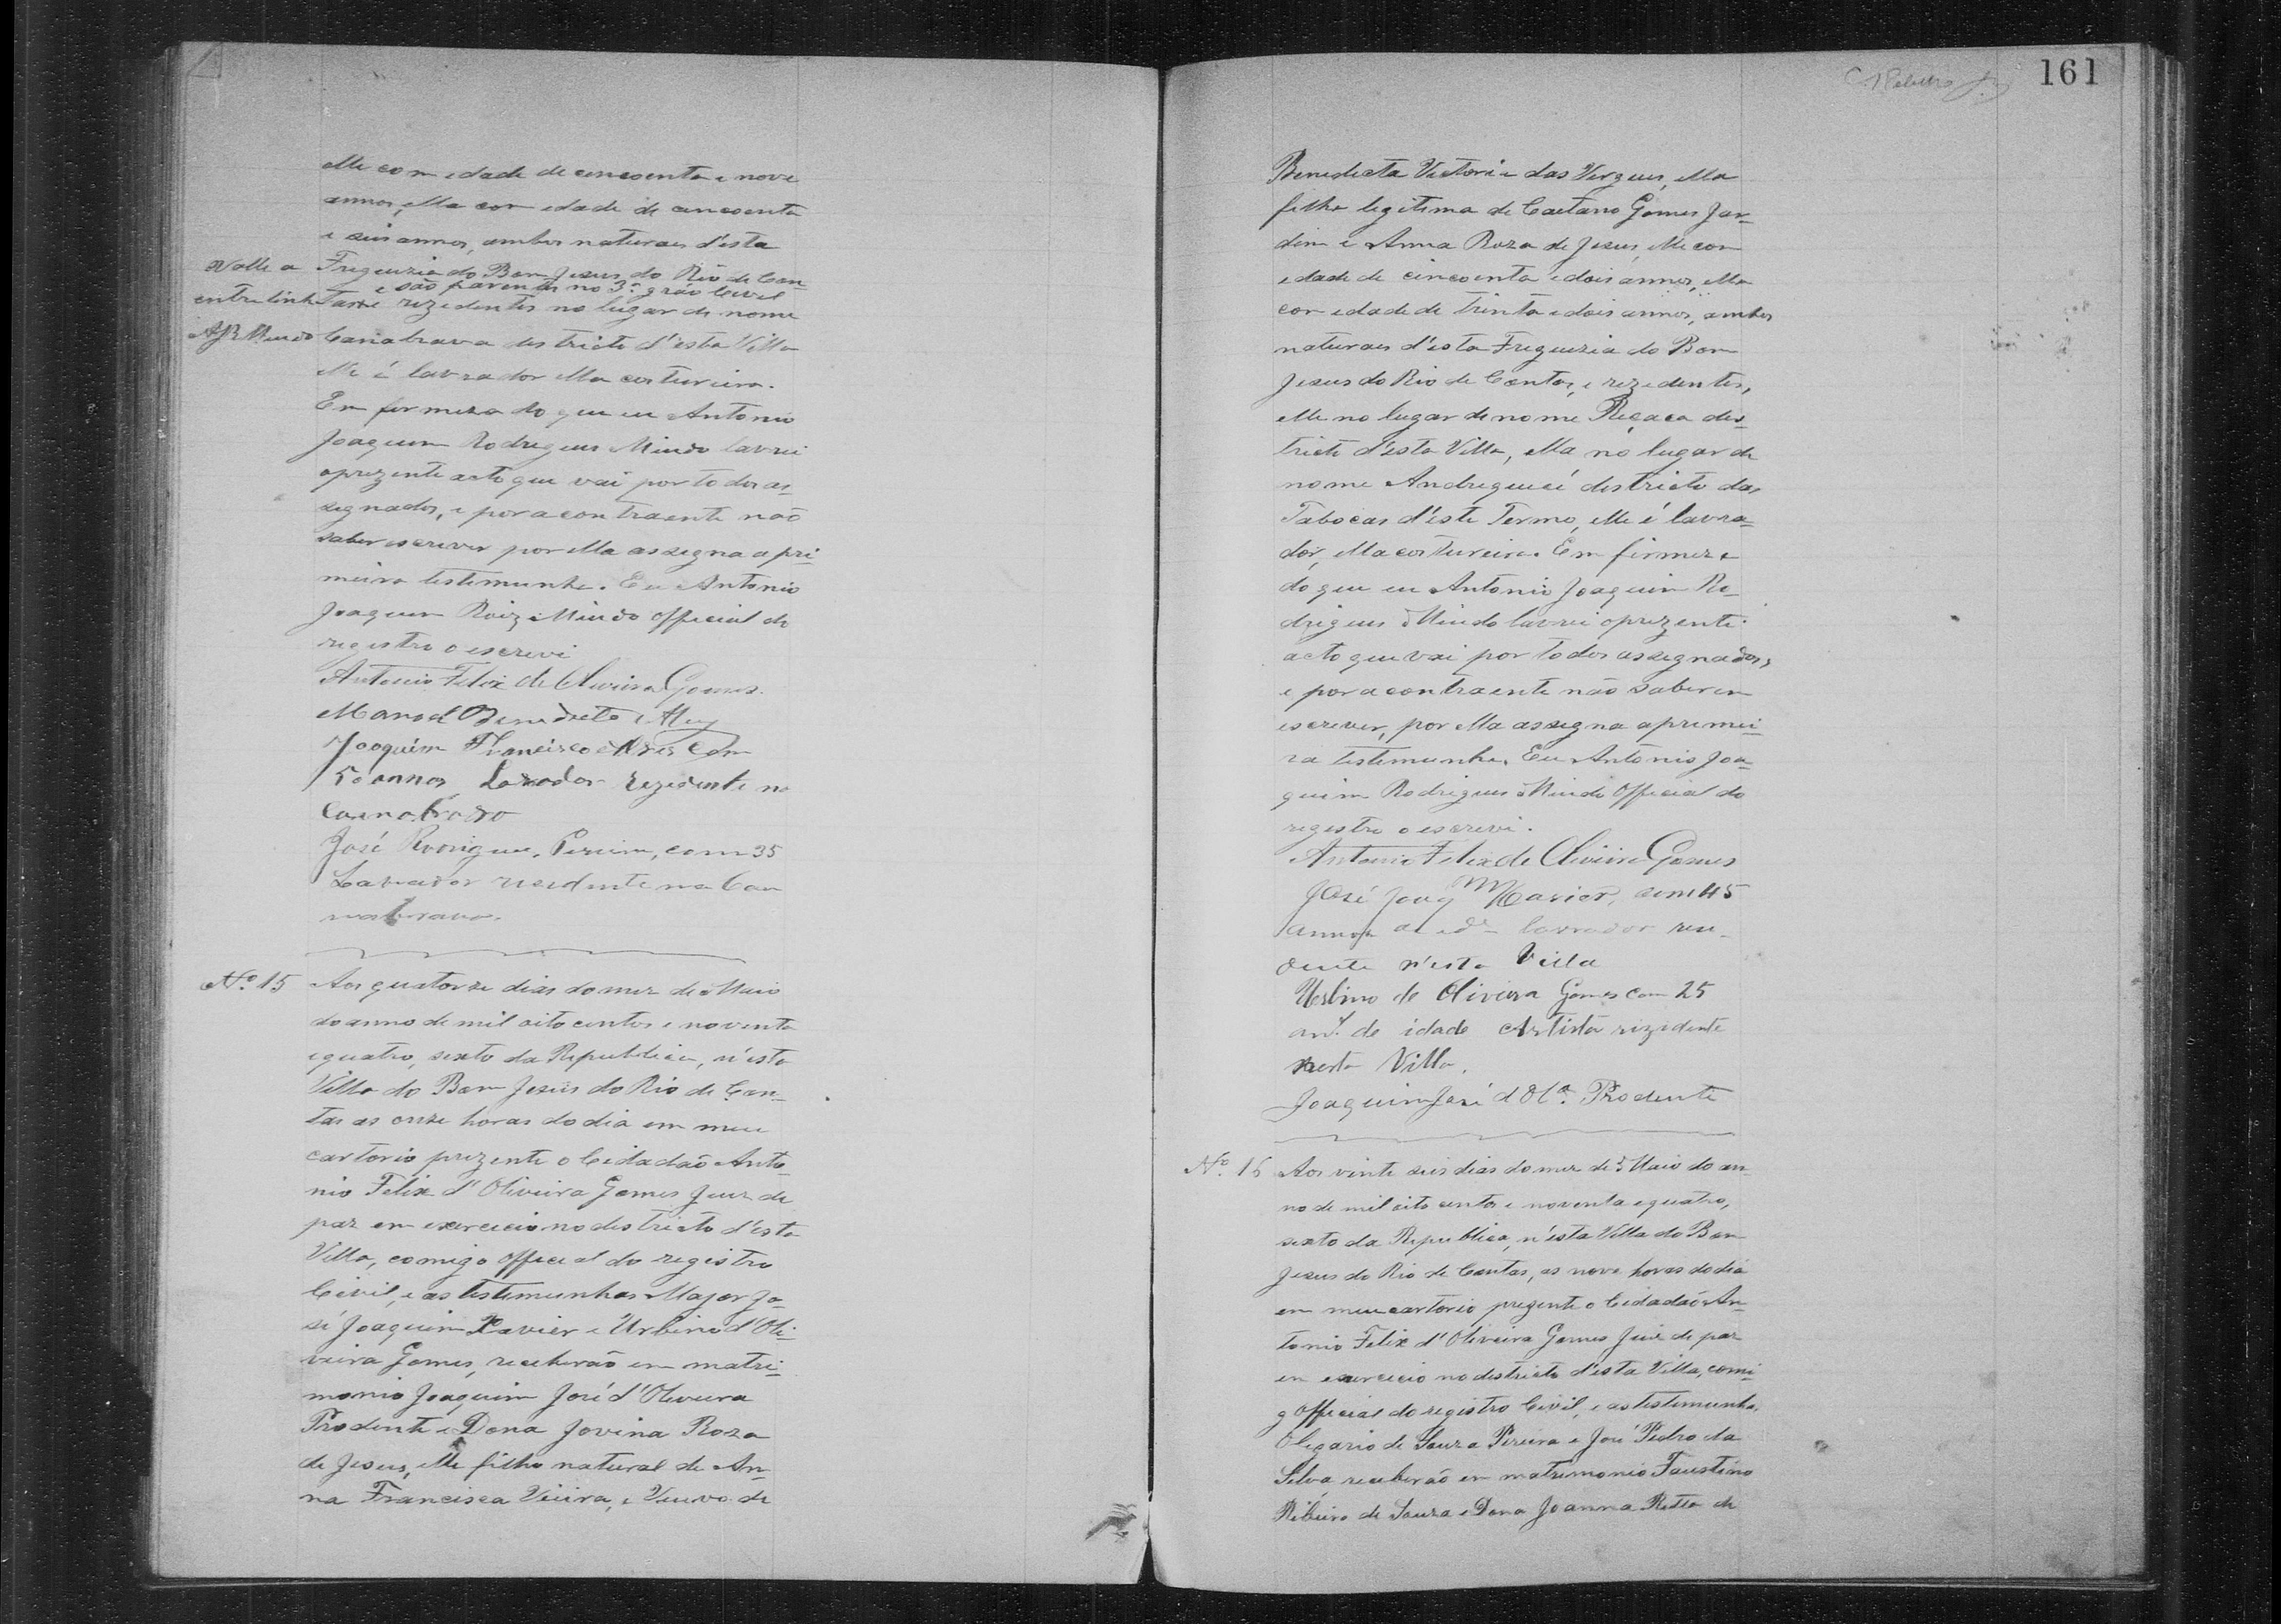 elle com edade de cincoenta e nove
annos, ella com edade de cincoenta
e seis annos, ambos naturaes d'esta
Valle a Freguezia do Bom Jesus do Rio de Con-
e são parentes no 3º gráo Civil
entrelinha tas e rezedentes no lugar de nome
AJRMindo Canabrava destricto d'esta Villa
elle é lavrador ella costureira.
Em firmeza do que eu Antonio
Joaquim Rodrigues Mindo lavrei
o prezente acto que vai por todos as-
segnados, e por a contraente não
saber escrever por ella assegna a pri-
meira testemunha. Eu Antonio
Joaquim Roiz Mindo Official do
registro o escrevi
Antonio Felix de Oliveira Gomes.
Manoel Benedicto
Joaquim Francisco Alves com
50 annos Lavrador rezidente na
Canabrava
José Rodrigues Pereira, com 35
Lavrador residente na Can
nabrava.
Nº 15 Aos quatorze dias do mez de Maio
do anno de mil oito centos e noventa
e quatro, sexto da Republica, n'esta
Villa do Bom Jesus do Rio de Con-
tas as onze horas do dia em meu
cartorio prezente o Cidadão Anto-
nio Felix d'Oliveira Gomes Juiz de
paz em exercicio no destricto d'esta
Villa, comigo official do registro
Civil, e as testemunhas Major Jo-
sé Joaquim Xavier e Urbino d'Oli-
veira Gomes, receberão em matri-
monio Joaquim José d'Oliveira
Prodente e Dona Jovina Roza
de Jesus, elle filho natural de An-
na Francisca Vieira, e Viuvo de
161
Benedicta Victoria das Virgens, ella
filha legitima de Caetano Gomes Jar-
dim e Anna Roza de Jesus, elle com
edade de cincoenta e dois annos, ella
com edade de trinta e dois annos, ambos
naturaes d'esta Freguezia do Bom
Jesus do Rio de Contas, e rezedentes,
elle no lugar de nome Reçaca des-
tricto d'esta Villa, ella no lugar de
nome Andrequecé destricto das
Tabocas d'este Termo, elle é lavra-
dor, ella costureira. Em firmeza
do que eu Antonio Joaquim Ro-
drigues Mindo lavrei o prezente
acto que vai por todos assegnados,
e por a contraente não saber em
escrever, por ella assegna a primei-
ra testemunha. Eu Antonio Joa-
quim Rodrigues Mindo Official do
registro o escrevi.
Antonio Felix de Oliveira Gomes
José Joaqm Xavier, com 45
annos de ede lavrador resi-
dente n'esta Villa
Urbino de Oliveira Gomes com 25
ans. de idade Artista rizidente
nesta Villa.
Joaquim José d'Olª. Prodente
Nº. 16 Aos vinte seis dias do mez de Maio do an-
no de mil oito centos e noventa e quatro,
sexto da Republica, n'esta Villa do Bom
Jesus do Rio de Contas, as nove horas do dia
em meu cartorio prezente o Cidadão An-
tonio Felix d'Oliveira Gomes Juiz de paz
em exercicio no destricto d'esta Villa, comi-
g official do registro Civil, e as testemunha
Olegario de Souza Pereira e José Pedro da
Silva, receberão em matrimonio Faustino
Ribeiro de Souza e Dona Joanna Ritta de